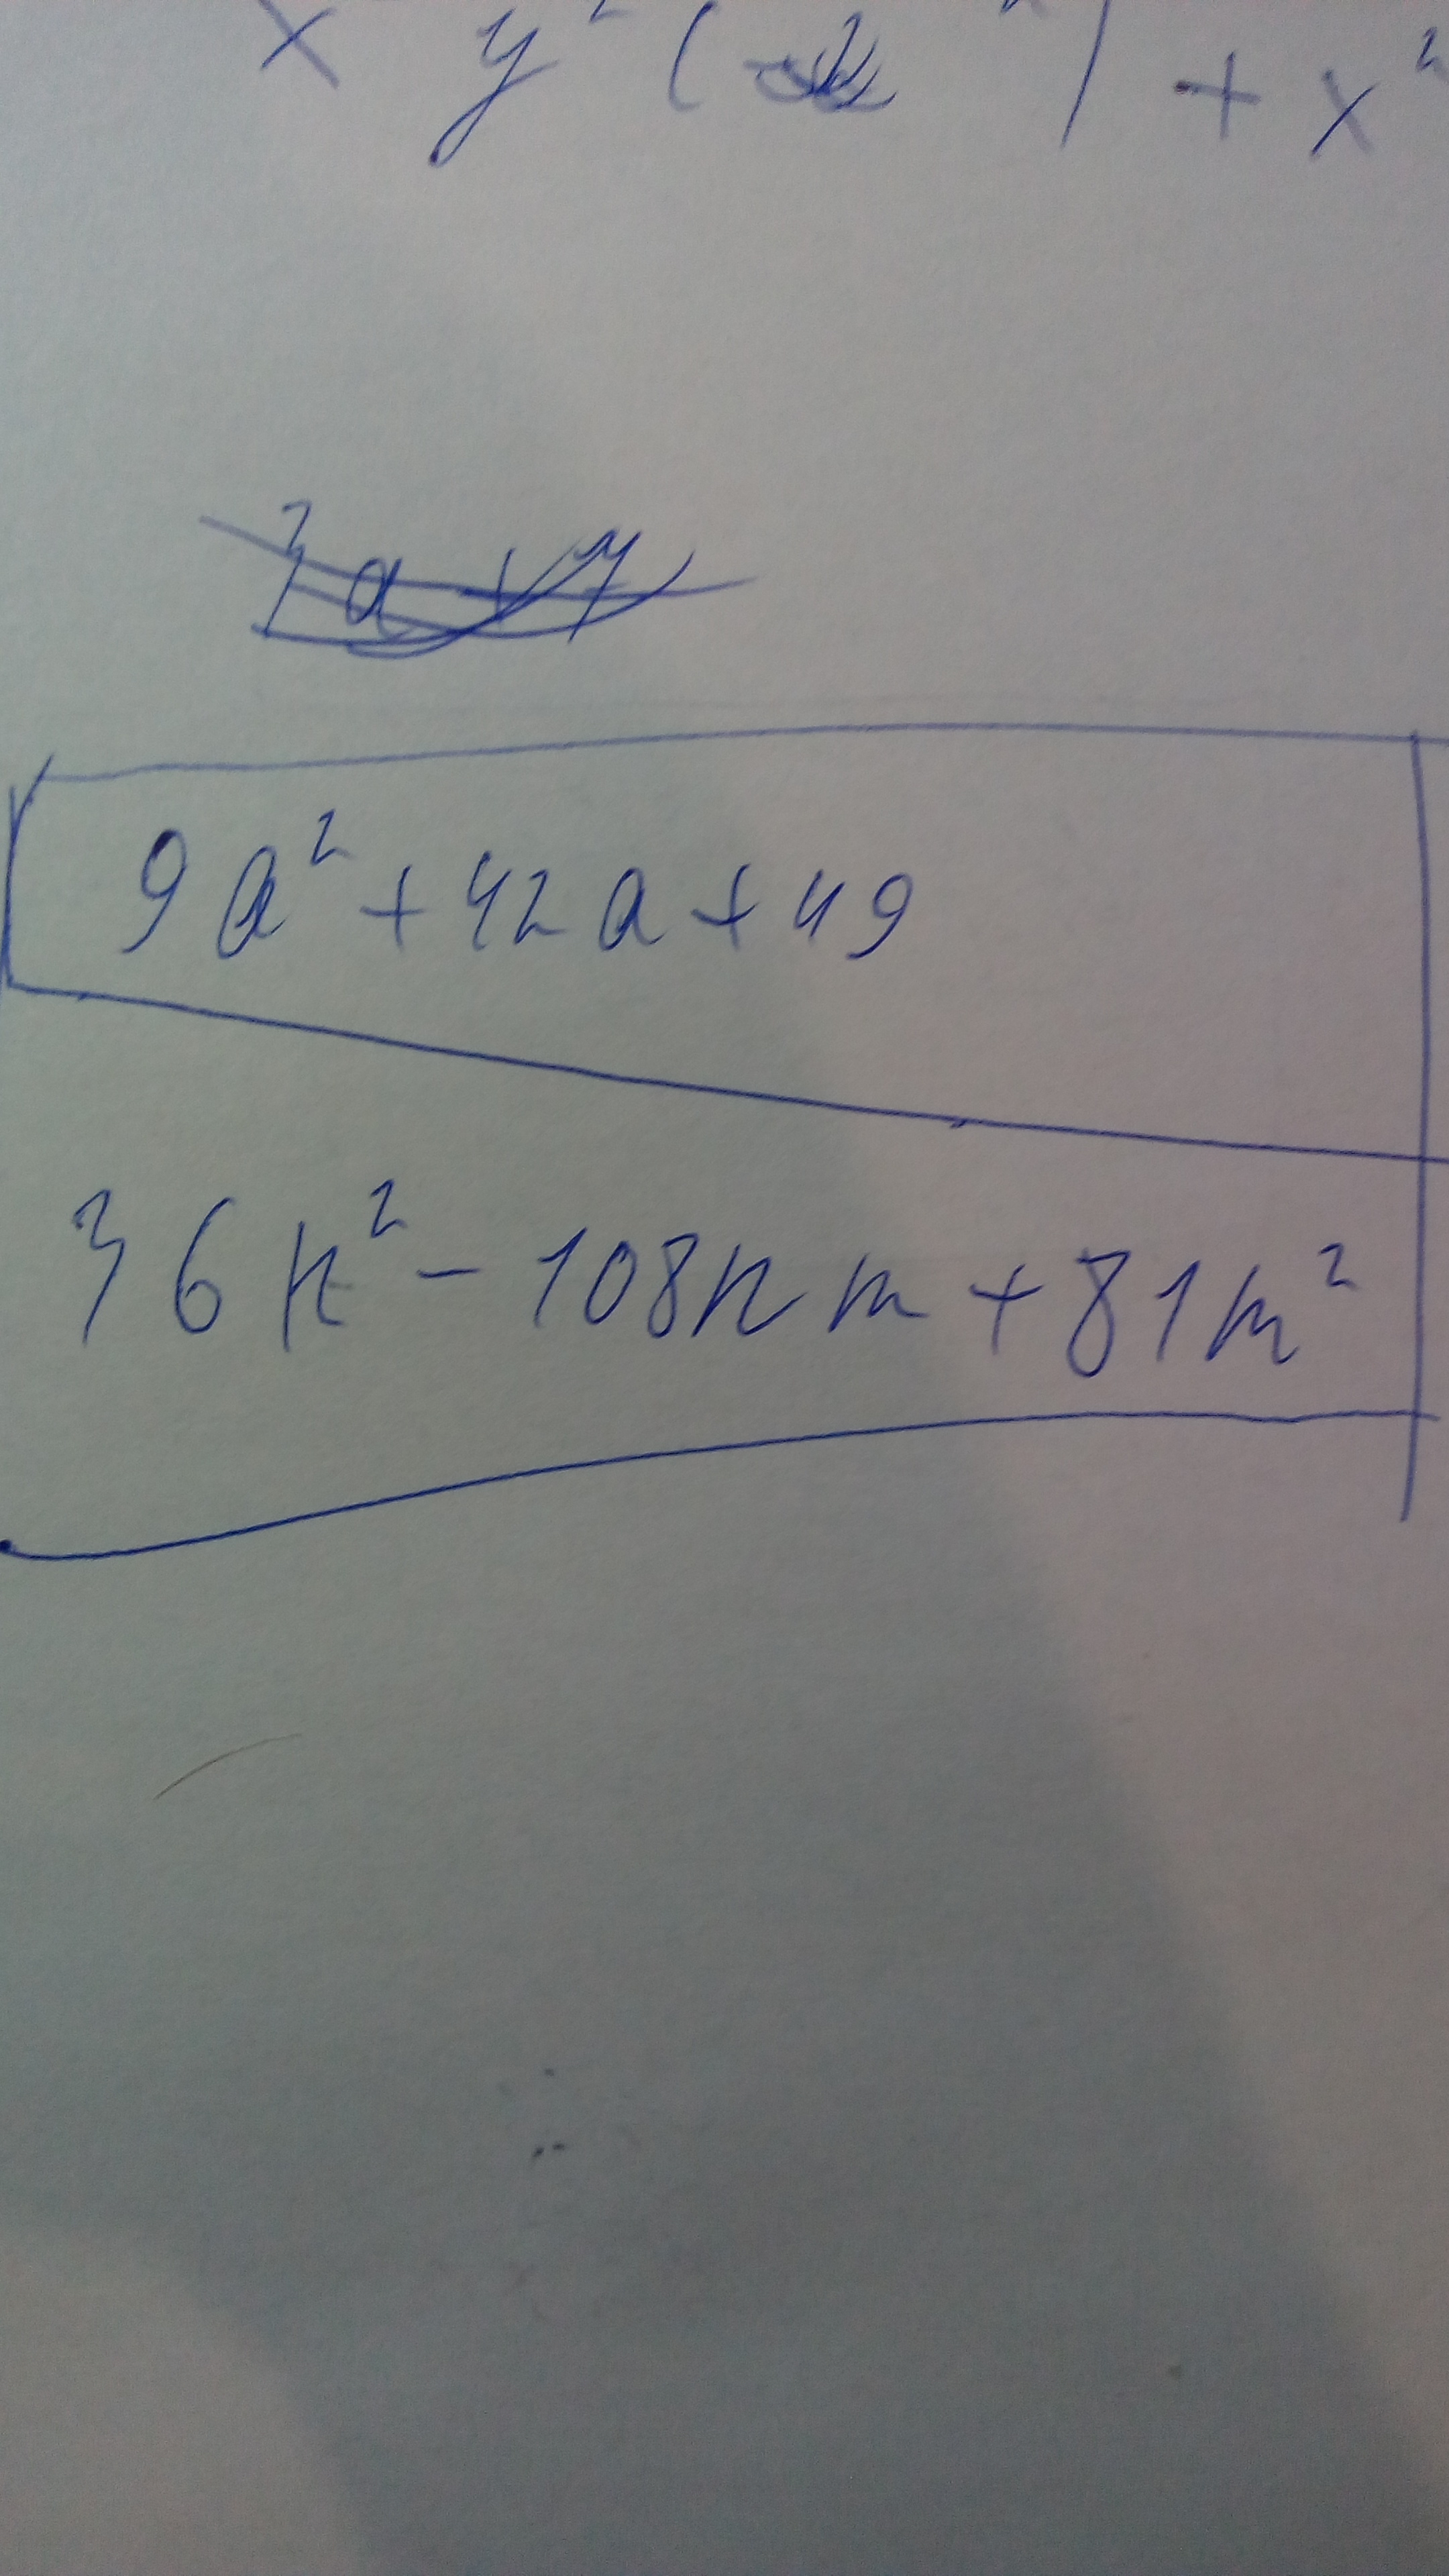 x y² ( ) + x²
3a + 7
9a² + 42a + 49
36n² - 108nm + 81m²